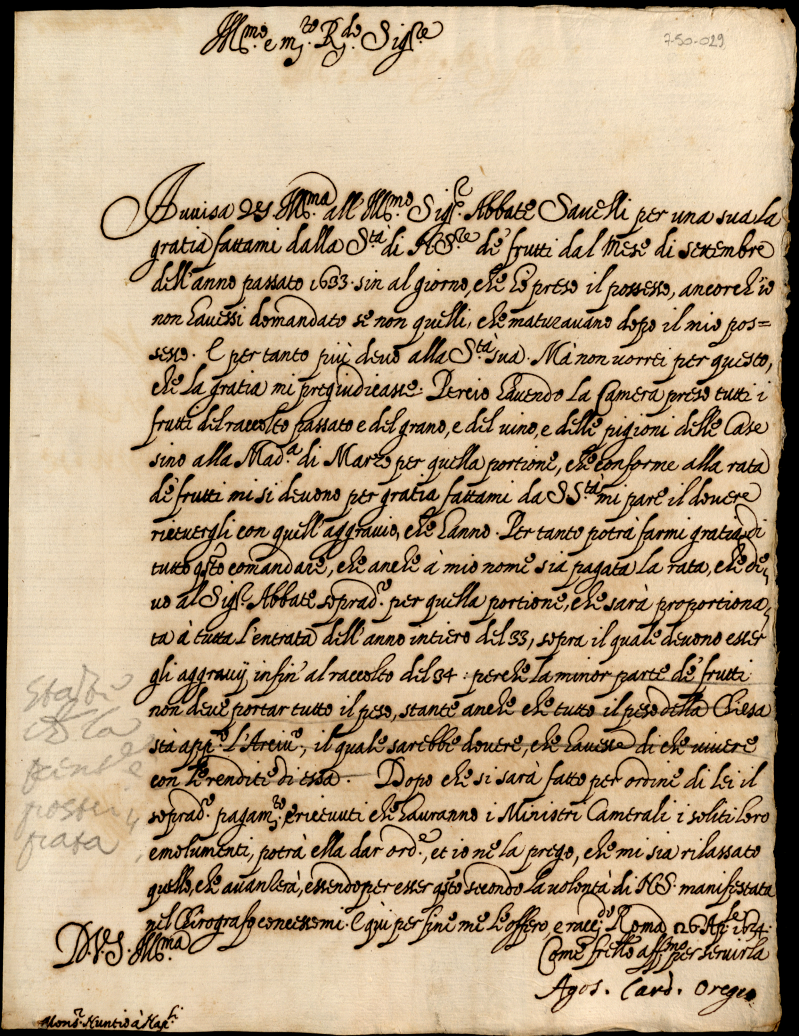 Ill.mo e m.to R.do Sig.re
7-50-029
Auuisa VS Ill.ma all' Ill.mo Sig.r Abbate Sauelli per una sua la
gratia fattami dalla S.tà di N S.re de' frutti dal mese di settembre
dell'anno passato 1633 sin al giorno, che hò preso il possesso, ancorch'io
non hauessi domandato se non quelli, che maturauano dopo il mio pos=
sesso. E per tanto più deuo alla S.tà sua. Mà non uorrei per questo,
che la gratia mi pregiudicasse. Perciò hauendo la Camera preso tutti i
frutti del raccolto passato e del grano, e del uino, e delle pigioni delle Case
sino alla Mad.a di Marzo per quella portione, che conforme alla rata
de' frutti mi si deuono per gratia fattami da S S.tà mi pare il douere
riceuergli con quell'aggrauio, che hanno. Per tanto potrà farmi gratia di
tutto q.sto comandare, che anche à mio nome sia pagata la rata, che de=
uo al Sig.r Abbate soprad.o per quella portione, che sarà proportiona=
ta à tutta l'entrata dell'anno intiero del 33, sopra il quale deuono esser
gli aggrauij infin' al raccolto del 34: perche la minor parte de' frutti
non deue portar tutto il peso, stante anche che tutto il peso della Chiesa
stà app.o l'Arciu.o, il quale sarebbe douere, che hauesse di che uiuere
con le rendite di essa. Dopo che si sarà fatto per ordine di lei il
soprad.o pagam.to, e riceuuti che hauranno i Ministri Camerali i soliti loro
emolumenti, potrà ella dar ord.e, et io ne la prego, che mi sia rilassato
quello, che auanzerà, essendo per esser q.sto secondo la uolontà di N S. manifestata
nel Chirografo concessomi. E quì per fine me l'offero, e racc.do Roma 26 Ap.le 1634.
D. V. S. Ill.ma
Come fr̃ello aff.mo per seruirla
Agos. Card. Oregio
Mons.r Nuntio à Nap.li